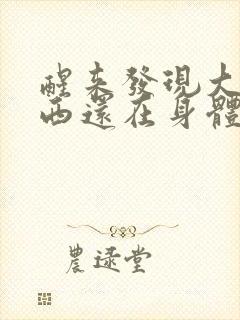 醒來發現大
西還在身體
農逯堂